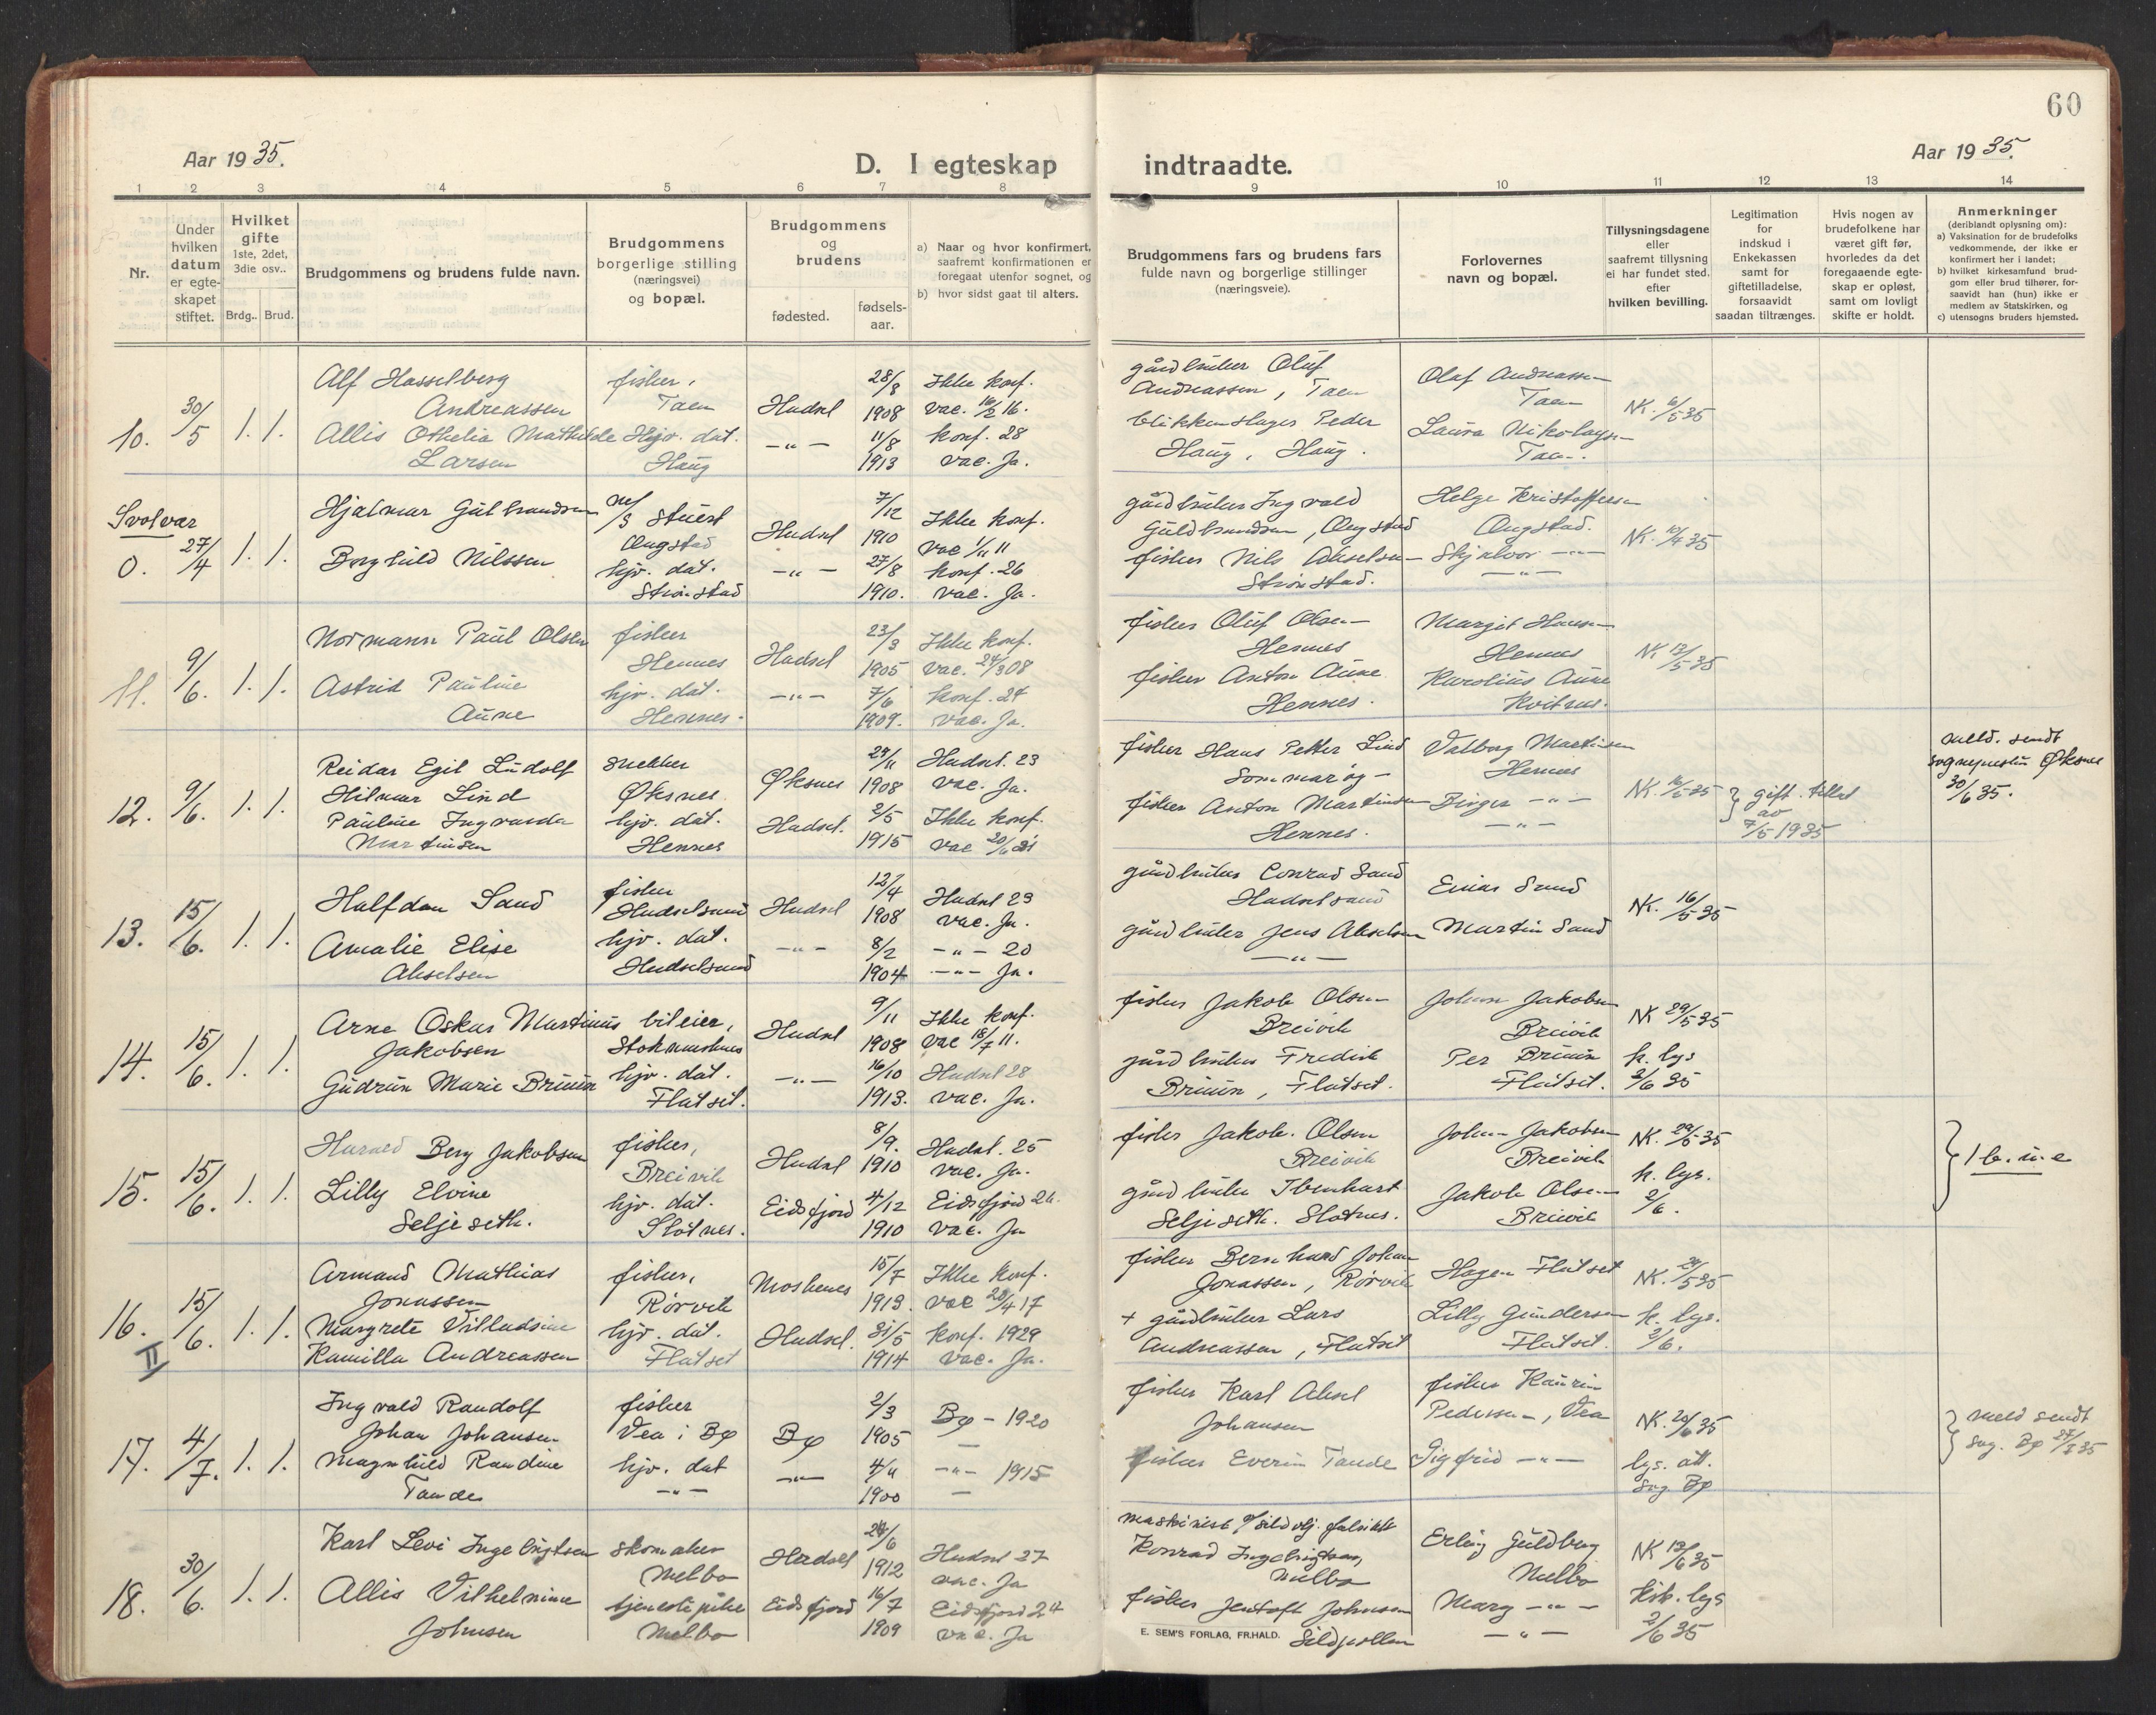 60
Aar 1935.
D. I egteskap indtraadte.
Aar 1935.
1 2 3 4 5 6 7 8 9 10 11 12 13 14
Nr.
Under hvilken datum er egteskapet stiftet.
Hvilket gifte 1ste, 2det, 3die osv..
Brdg.. Brud.
Brudgommens og brudens fulde navn.
Brudgommens borgerlige stilling (næringsvei) og bopæl.
Brudgommens og brudens
fødested.
fødsels-aar.
a) Naar og hvor konfirmert, saafremt konfirmationen er foregaat utenfor sognet, og
b) hvor sidst gaat til alters.
Brudgommens fars og brudens fars fulde navn og borgerlige stillinger (næringsveie).
Forlovernes navn og bopæl.
Tillysningsdagene eller saafremt tillysning ei har fundet sted. efter hvilken bevilling.
Legitimation for indskud i Enkekassen samt for giftetilladelse, forsaavidt saadan tiltrænges.
Hvis nogen av brudefolkene har været gift før, hvorledes da det foregaaende egteskap er opløst, samt om lovligt skifte er holdt.
Anmerkninger (deriblandt oplysning om):
a) Vaksination for de brudefolks vedkommende, der ikke er konfirmert her i landet;
b) hvilket kirkesamfund brudgom eller brud tilhører, forsaavidt han (hun) ikke er medlem av Statskirken, og
c) utensogns bruders hjemsted.
10. 30/5 1. 1.
Alf Hasselberg
Andreassen
Allis Othelia Mathilde
Larsen
fisker,
Taen
Hjv. dat.
Haug
Hadsel
-"-
28/8
1908
11/8
1913
Ikke konf.
vac. 16/2 16.
konf. 28
vac. Ja.
gårdbruker Oluf
Andreassen, Taen
blikkenslager Peder
Haug, Haug.
Olaf Andreassen
Taen
Laura Nikolaysen
Taen.
NK. 6/5 35
Svolvær
0. 27/4 1. 1.
Hjalmar Gulbrandsen
Borghild Nilssen
m/s stuert
Ongstad
hjv. dat.
Strønstad
Hadsel
-"-
7/12
1910
27/8
1910.
Ikke konf.
vac 1/11 11
konf. 26
vac. Ja.
gårdbruker Ingvald
Guldbrandsen, Ongstad
fisker Nils Akselsen
Strønstad.
Helge Kristoffersen
Ongstad.
Skjalvor -"-
-"-
NK. 10/4 35
11. 9/6. 1. 1.
Normann Paul Olsen
Astrid Pauline
Aune
fisker
Hennes
hjv. dat.
Hennes.
Hadsel
-"-
23/3
1905
7/6
1909.
Ikke konf.
vac. 24/3 08
konf. 24
vac. Ja.
fisker Oluf Olsen
Hennes
fisker Anton Aune
Hennes.
Margit Hansen
Hennes
Karolius Aune
Kvitnes.
NK. 13/5 35
12. 9/6. 1. 1.
Reidar Egil Ludolf
Hilmar Lind
Pauline Ingvarda
Martinsen
snekker
Øksnes
hjv. dat.
Hennes
Øksnes
Hadsel.
29/11
1908
2/5
1915
Hadsel. 23
vac. Ja.
Ikke konf.
vac 20/6 21
fisker Hans Petter Lind
Sommarøy
fisker Anton Martinsen
Hennes.
Valborg Martinsen
Hennes
Birger -"-
-"-
NK. 16/5 35
gift. tillat
av
7/5 1935
meld. sendt
sognepresten Øksnes
30/6 35.
13. 15/6. 1. 1.
Halfdan Sand
Amalie Elise
Akselsen
fisker
Hadselsand
hjv. dat.
Hadselsand
Hadsel
-"-
12/4
1908
8/2
1904
Hadsel 23
vac. Ja.
-"- 20
-"- Ja.
gårdbruker Conrad Sand
Hadselsand
gårdbruker Jens Akselsen
-"-
Einar Sand
Martin Sand
NK. 16/5 35
14. 15/6. 1. 1.
Arne Oskar Martinus
Jakobsen
Gudrun Marie Bruun
bileier,
Stokmarknes
hjv. dat.
Flatset.
Hadsel
-"-
9/11
1908
16/10
1913.
Ikke konf.
vac 18/7 11.
Hadsel 28
vac. Ja.
fisker Jakob Olsen
Breivik
gårdbruker Fredrik
Bruun, Flatset.
Johan Jakobsen
Breivik
Per Bruun
Flatset.
NK 29/5 35
k. lys
2/6 35
15. 15/6. 1. 1.
Harald Berg Jakobsen
Lilly Elvine
Seljeseth.
fisker,
Breivik
hjv. dat.
Slotnes.
Hadsel
Eidsfjord
8/9.
1910
4/12
1910
Hadsel. 25
vac. Ja.
Eidsfjord 26.
vac. Ja
fisker Jakob. Olsen
Breivik
gårdbruker Ibenhart
Seljeseth. Slotnes.
Johan Jakobsen
Breivik
Jakob Olsen
Breivik
NK. 29/5 35
k. lys.
2/6.
1 b. u. e
16. 15/6. 1. 1.
II
Armand Mathias
Jonassen
Margrete Villadsine
Kamilla Andreassen
fisker,
Rørvik
hjv. dat.
Flatset
Moskenes
Hadsel.
15/7
1913.
31/5
1914
Ikke konf.
vac 28/4 17
konf. 1929
vac. Ja.
fisker Bernhard Johan
Jonassen, Rørvik
+ gårdbruker Lars
Andreassen, Flatset
Hagen Flatset
Lilly Gundersen
Flatset.
NK. 29/5 35
k. lys.
2/6.
17. 4/7. 1. 1.
Ingvald Randolf
Johan Johansen
Magnhild Randine
Tande
fisker
Vea i Bø
hjv. dat
-"-
Bø
-"-
2/3
1905
4/11
1900
Bø - 1920
-
-"- 1915
-
fisker Karl Aksel
Johansen
fisker Everin Tande
fisker Kaurin
Pedersen, Vea
Sigfrid -"-
NK. 20/6 35
lys. att.
Sog. Bø
meld sendt
Sog. Bø 27/7 35
18. 30/6. 1. 1.
Karl Levi Ingebrigtsen
Allis Vilhelmine
Johnsen
skomaker
Melbo
tjenestepike
Melbo
Hadsel
Eidsfjord
24/6
1912
16/7
1909
Hadsel 27
vac. Ja
Eidsfjord 24
vac. Ja
maskinist v/ sildolj. fabrikk
Konrad Ingebrigtsen,
Melbo
fisker Jentoft Johnsen
Sildpollen
Erling Guldberg
Melbo
Mary -"-
-"-
NK 13/6 35
Kirk. lys
2/6 35
E. SEM'S FORLAG, FR.HALD.